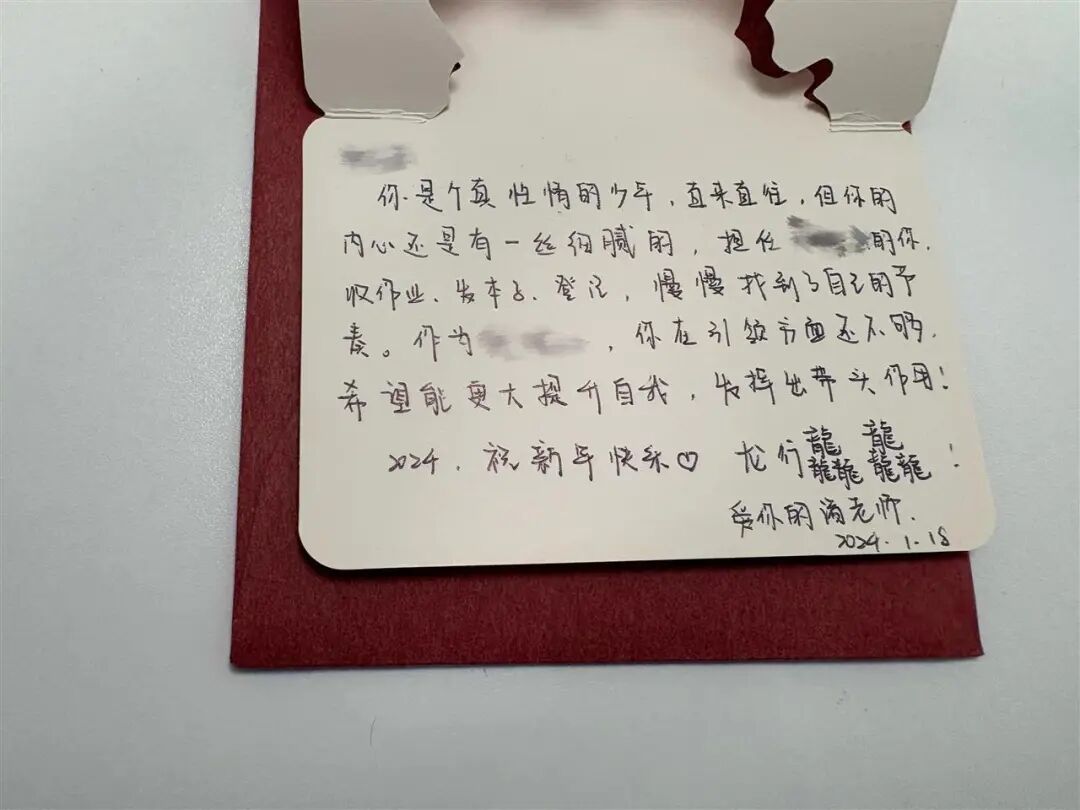 你是个真性情的少年，直来直往，但你的
内心还是有一丝细腻的，担任 的你，
收作业、发本子、登记，慢慢找到了自己的节
奏。作为 ，你在引领方面还不够，
希望能更大提升自我，发挥出带头作用！
2024，祝新年快乐♡ 龙行龘龘！
爱你的潘老师.
2024.1.18